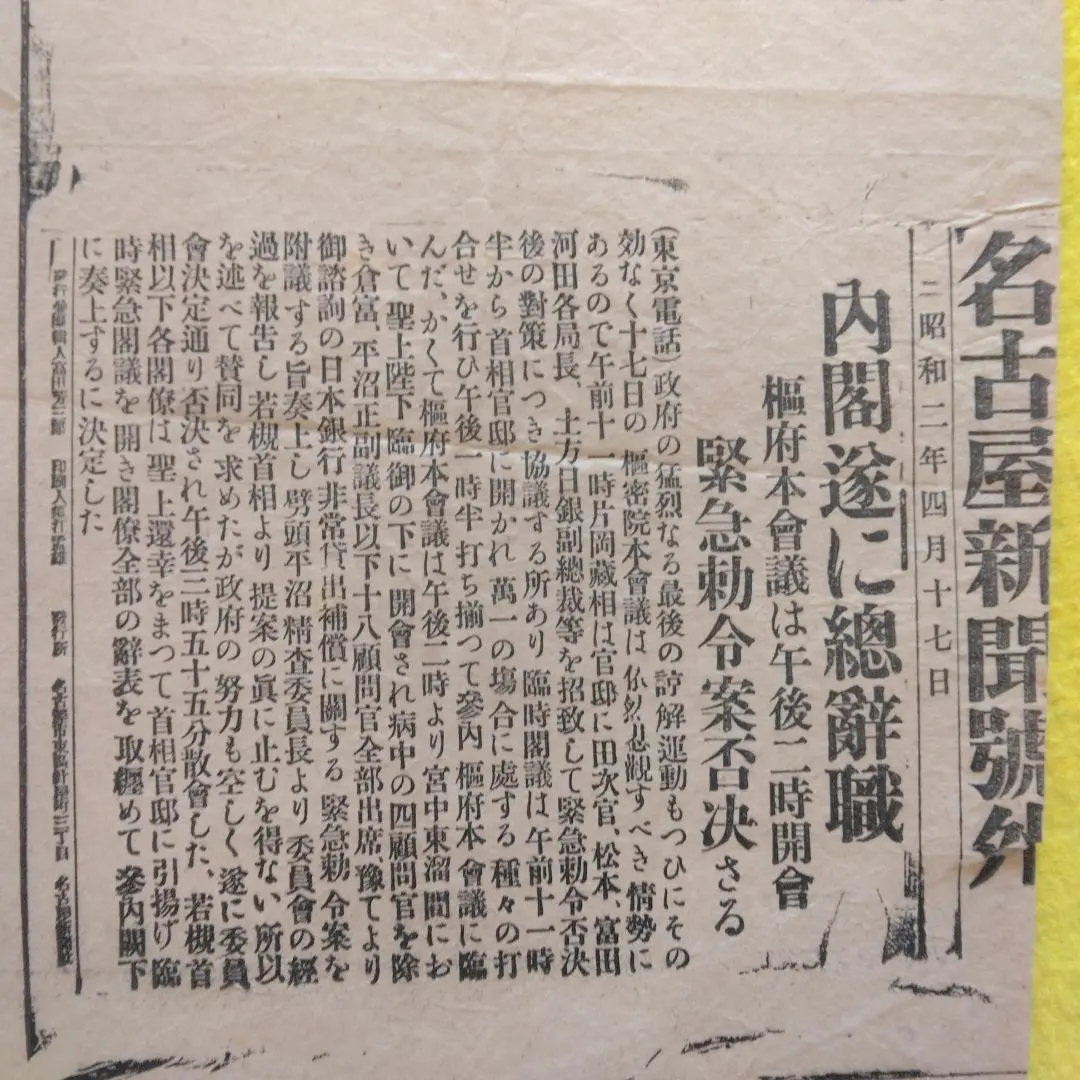 名古屋新聞號外
昭和二年四月十七日
內閣遂に總辭職
樞府本會議は午後二時開會
緊急勅令案否決さる
(東京電話)政府の猛烈なる最後の諒解運動もつひにその
効なく十七日の樞密院本會議は悲觀すべき情勢に
あるので午前十一時片岡藏相は官邸に田次官、松本、富田
河田各局長、土方日銀副總裁等を招致して緊急勅令否決
後の對策につき協議する所あり臨時閣議は午前十一時
半から首相官邸に開かれ萬一の塲合に處する種々の打
合せを行ひ午後一時半打ち揃つて參內樞府本會議に臨
んだ、かくて樞府本會議は午後二時より宮中東溜間にお
いて聖上陛下臨御の下に開會され病中の四顧問官を除
き倉富、平沼正副議長以下十八顧問官全部出席、豫てより
御諮詢の日本銀行非常貸出補償に關する緊急勅令案を
附議する旨奏上し劈頭平沼精査委員長より委員會の經
過を報告し若槻首相より提案の眞に止むを得ない所以
を述べて贊同を求めたが政府の努力も空しく遂に委員
會決定通り否決され午後三時五十五分散會した、若槻首
相以下各閣僚は聖上還幸をまつて首相官邸に引揚げ臨
時緊急閣議を開き閣僚全部の辭表を取纏めて參內闕下
に奏上するに決定した